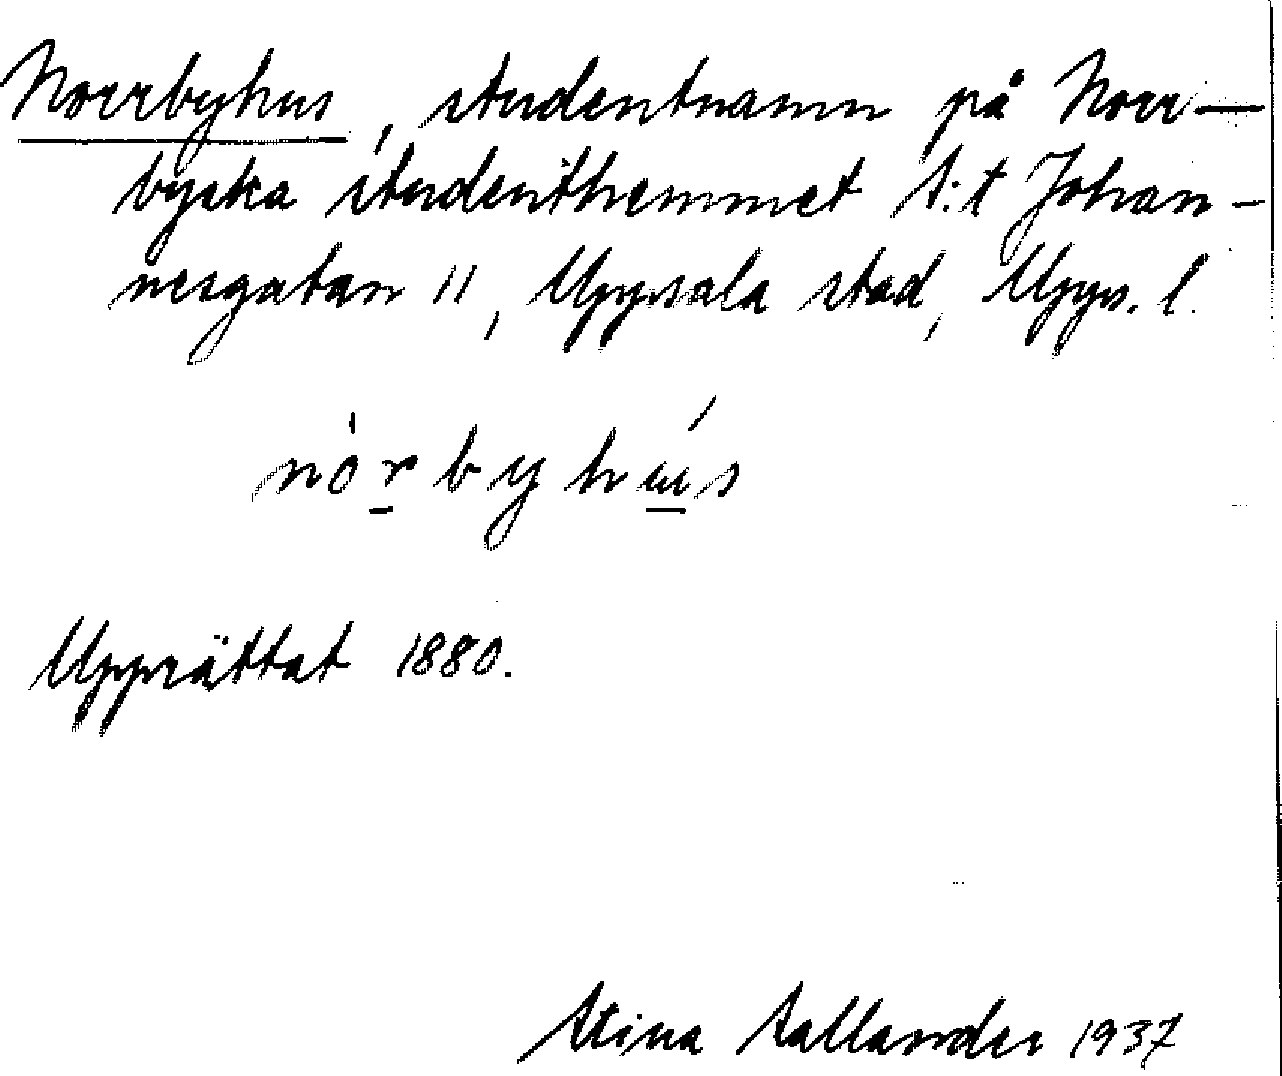 Norrbyhus, studentnamn på Norr-
byska studenthemmet S:t Johan-
nesgatan 11, Uppsala stad, Upps. l.
nòrbyhús
Upprättat 1880.
Stina Sallander 1937